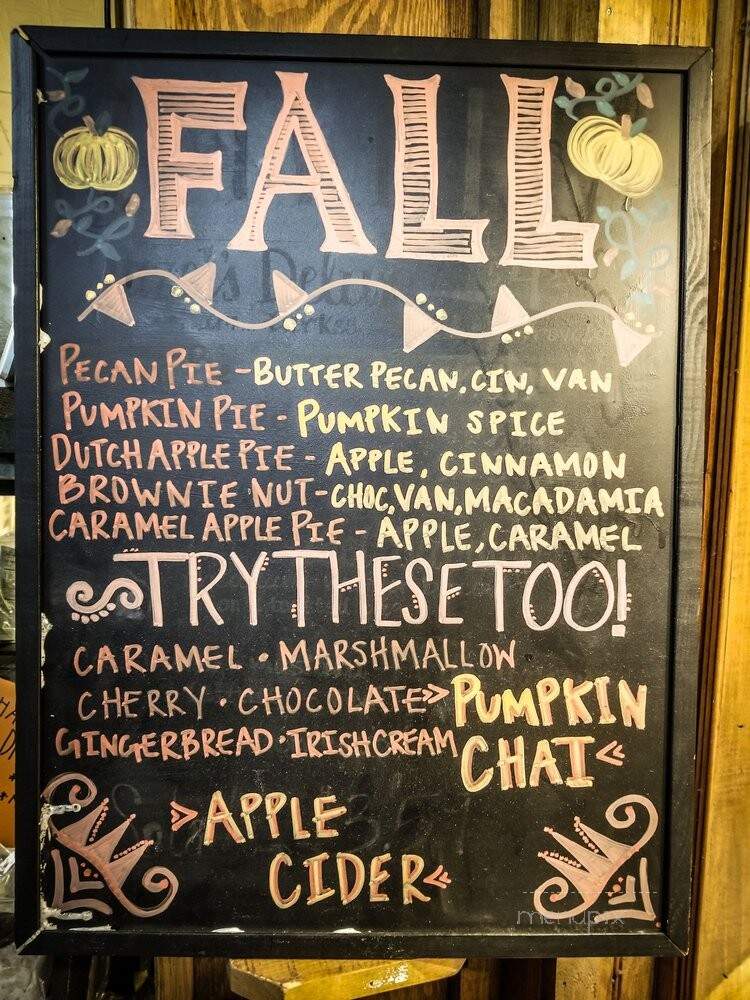 FALL
PECAN PIE - BUTTER PECAN, CIN, VAN
PUMPKIN PIE - PUMPKIN SPICE
DUTCH APPLE PIE - APPLE, CINNAMON
BROWNIE NUT - CHOC, VAN, MACADAMIA
CARAMEL APPLE PIE - APPLE, CARAMEL
TRY THESE TOO!
CARAMEL • MARSHMALLOW
CHERRY • CHOCOLATE
GINGERBREAD • IRISH CREAM
» PUMPKIN
CHAI «
» APPLE
CIDER «
menupix